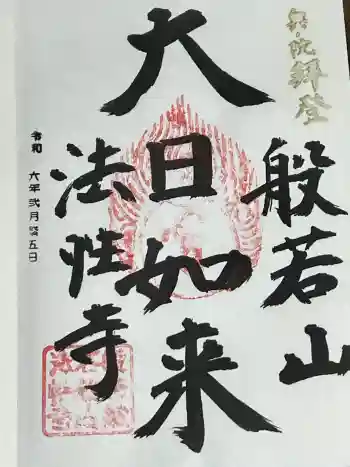 拝登
般若山
大日如来
法性寺
令和 六年 弐月 廿五日